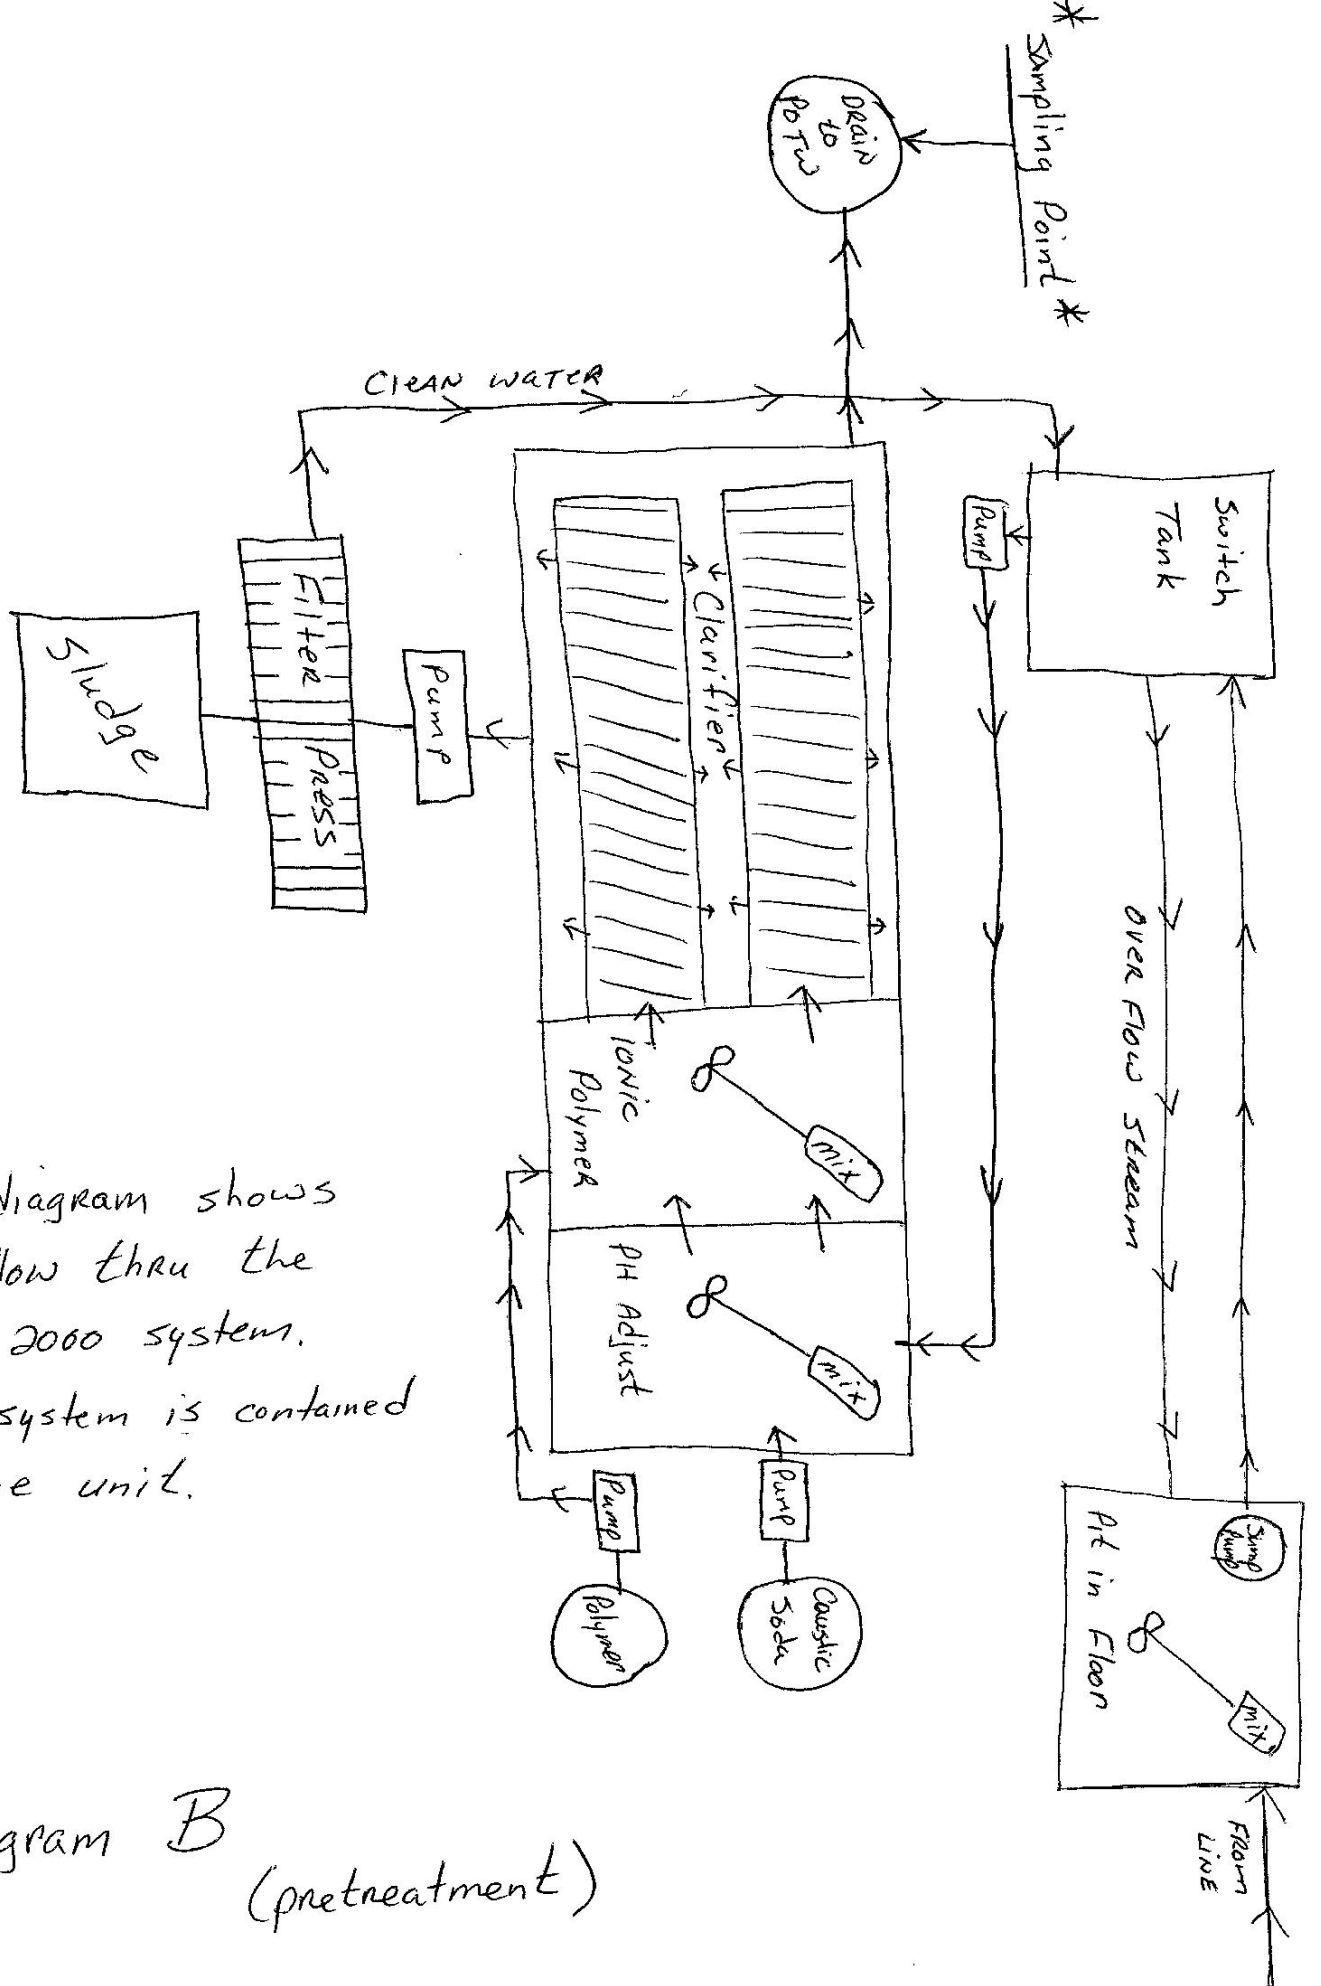 * Sampling Point *
DRAIN
to
POTW
CleAN WATER
Switch
Tank
Pump
Clarifier
Filter Press
Pump
Sludge
OVER Flow STREAM
IONIC
Polymer
mix
PH Adjust
mix
Pump
Pump
Polymer
Caustic
Soda
Sump
Pump
Pit in Floor
mix
FROM
LINE
diagram shows
low thru the
2000 system.
system is contained
e unit.
gram B
(pretreatment)